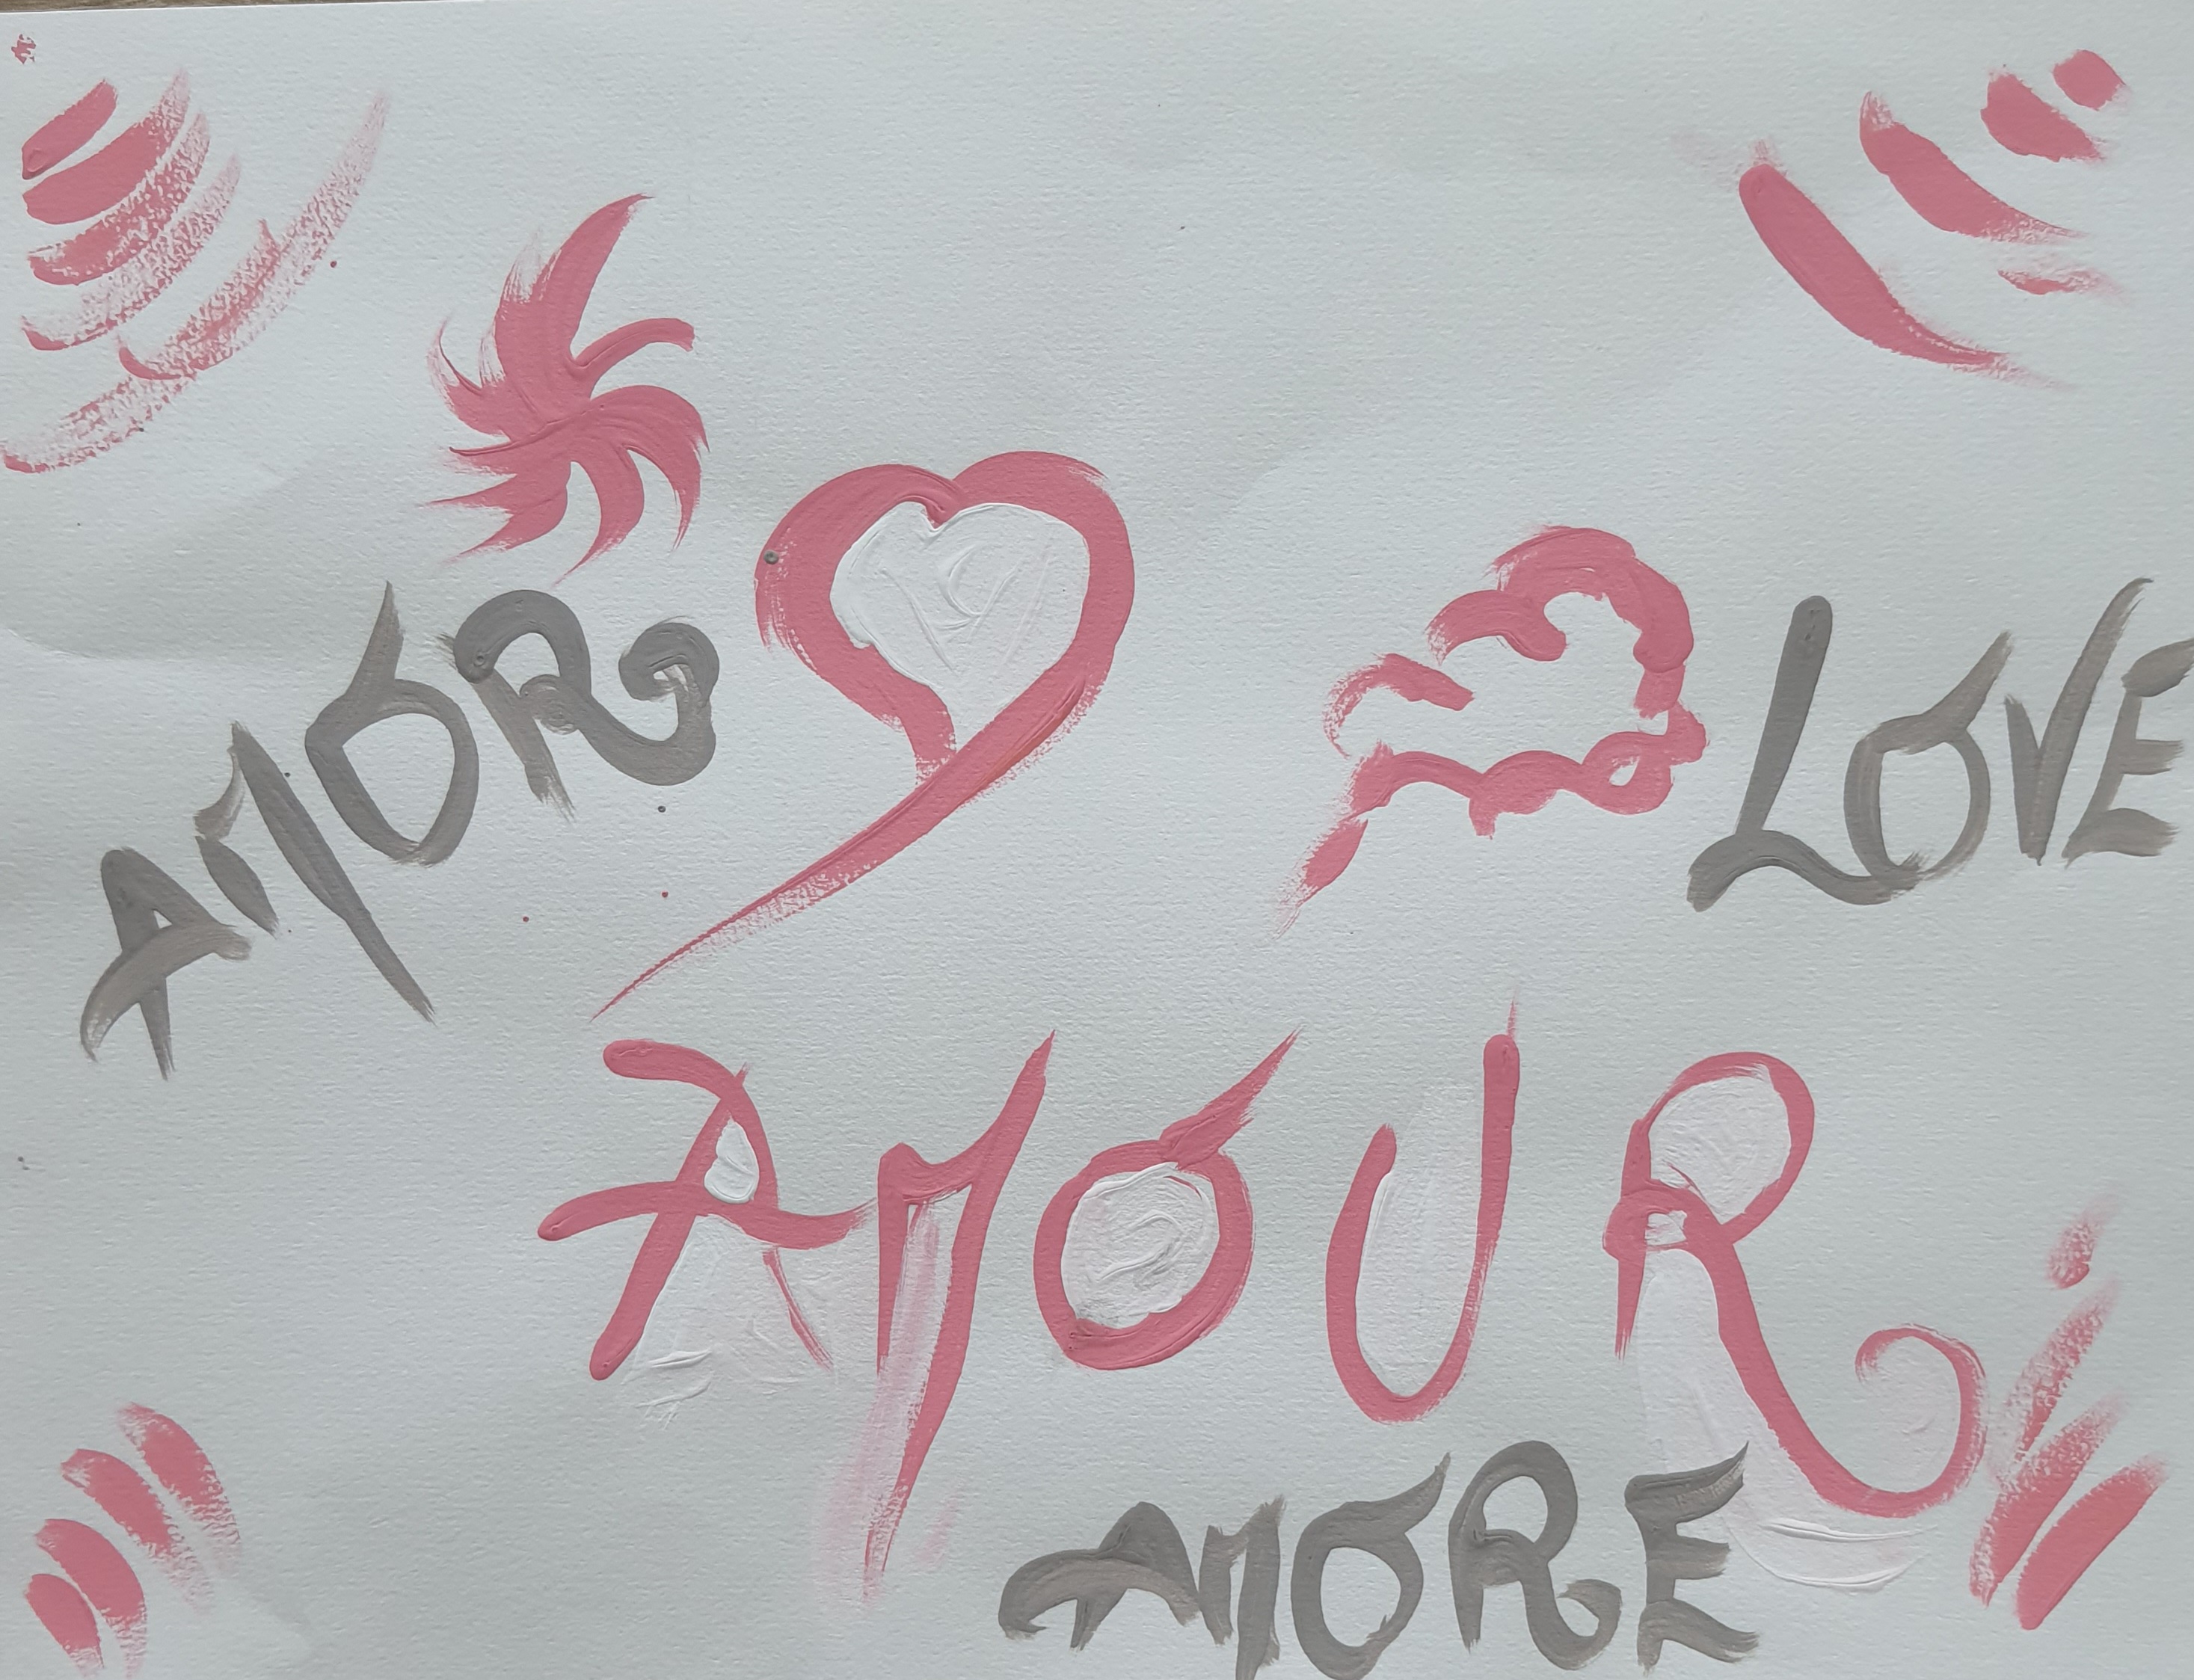 AMOR
LOVE
AMOUR
AMORE